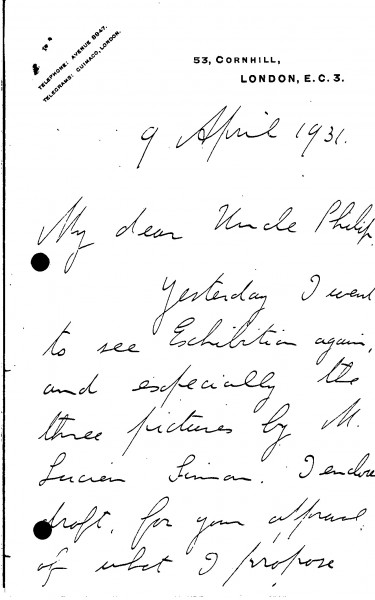 TELEPHONE: AVENUE 8947.
TELEGRAMS: CUIMACO, LONDON.
53, CORNHILL,
LONDON, E.C. 3.
9 April 1931.
My dear Uncle Philip
Yesterday I went
to see Exhibition again,
and especially the
three pictures by M.
Lucien Simon. I enclose
draft, for your approval
of what I propose